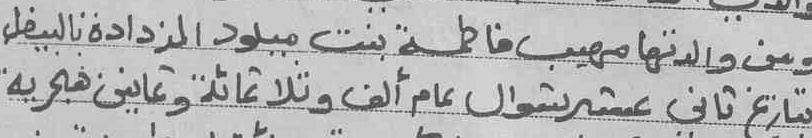 ومن والدتها مهيب فاطمة بنت ميلود المزدادة بالبيض
بتاريخ ثاني عشر شوال عام ألف وثلاثمائة وثمانين هجرية